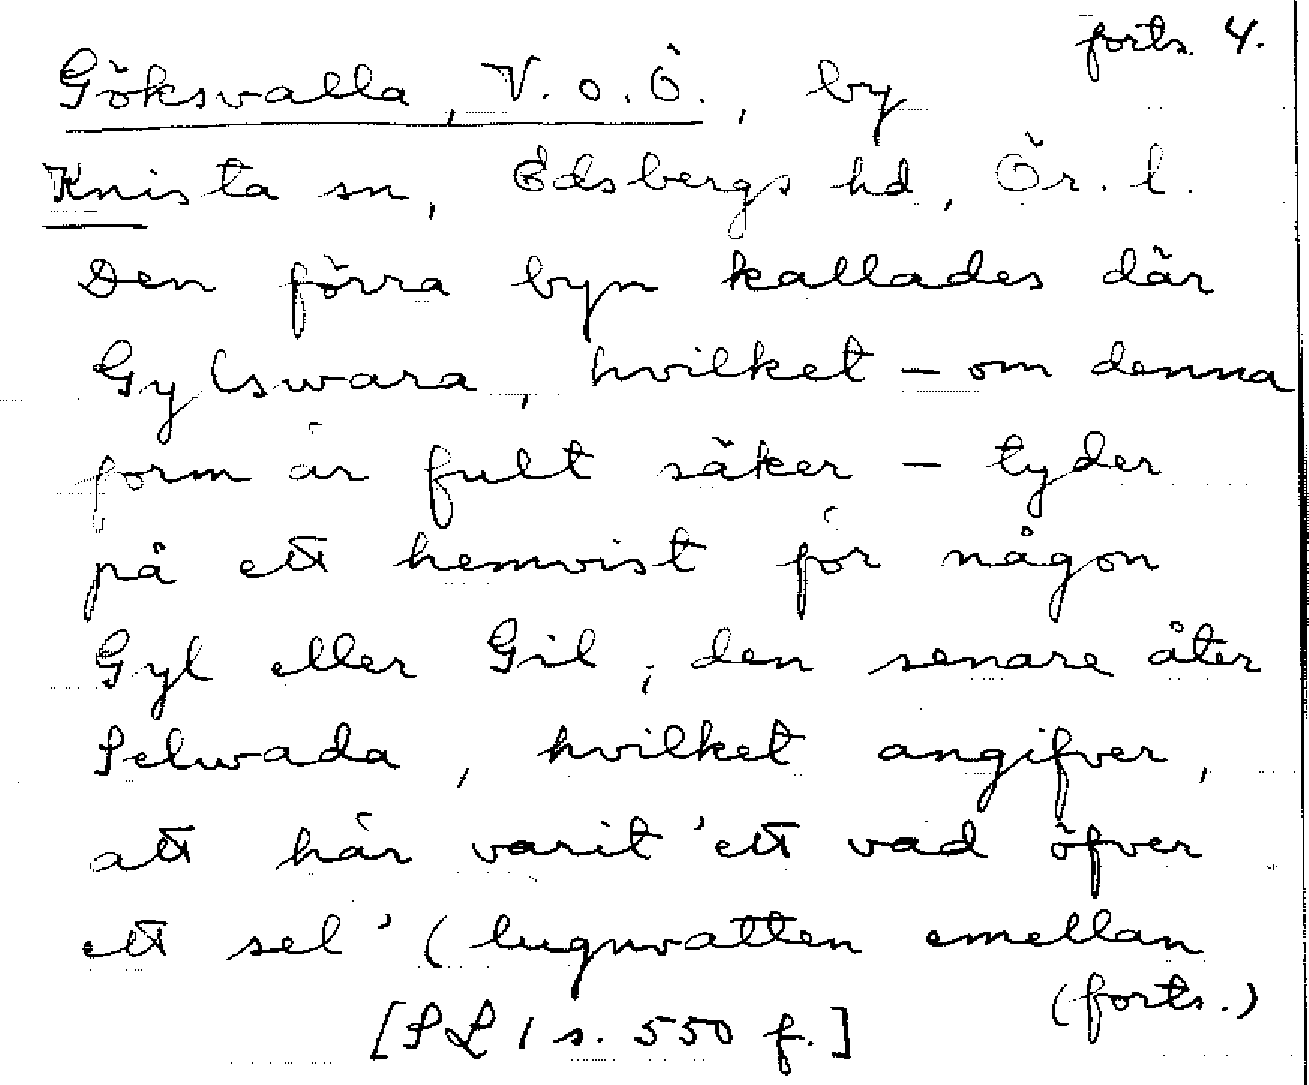 forts. 4.
Göksvalla, V. o. Ö., by
Knista sn, Edsbergs hd, Ör. l.
Den förra byn kallades där
Gylswara, hvilket – om denna
form är fult säker – tyder
på ett hemvist för någon
Gyl eller Gil; den senare åter
Selwada, hvilket angifver,
att här varit 'ett vad öfver
ett sel' (lugnvatten emellan
(forts.)
[SL 1 s. 550 f.]